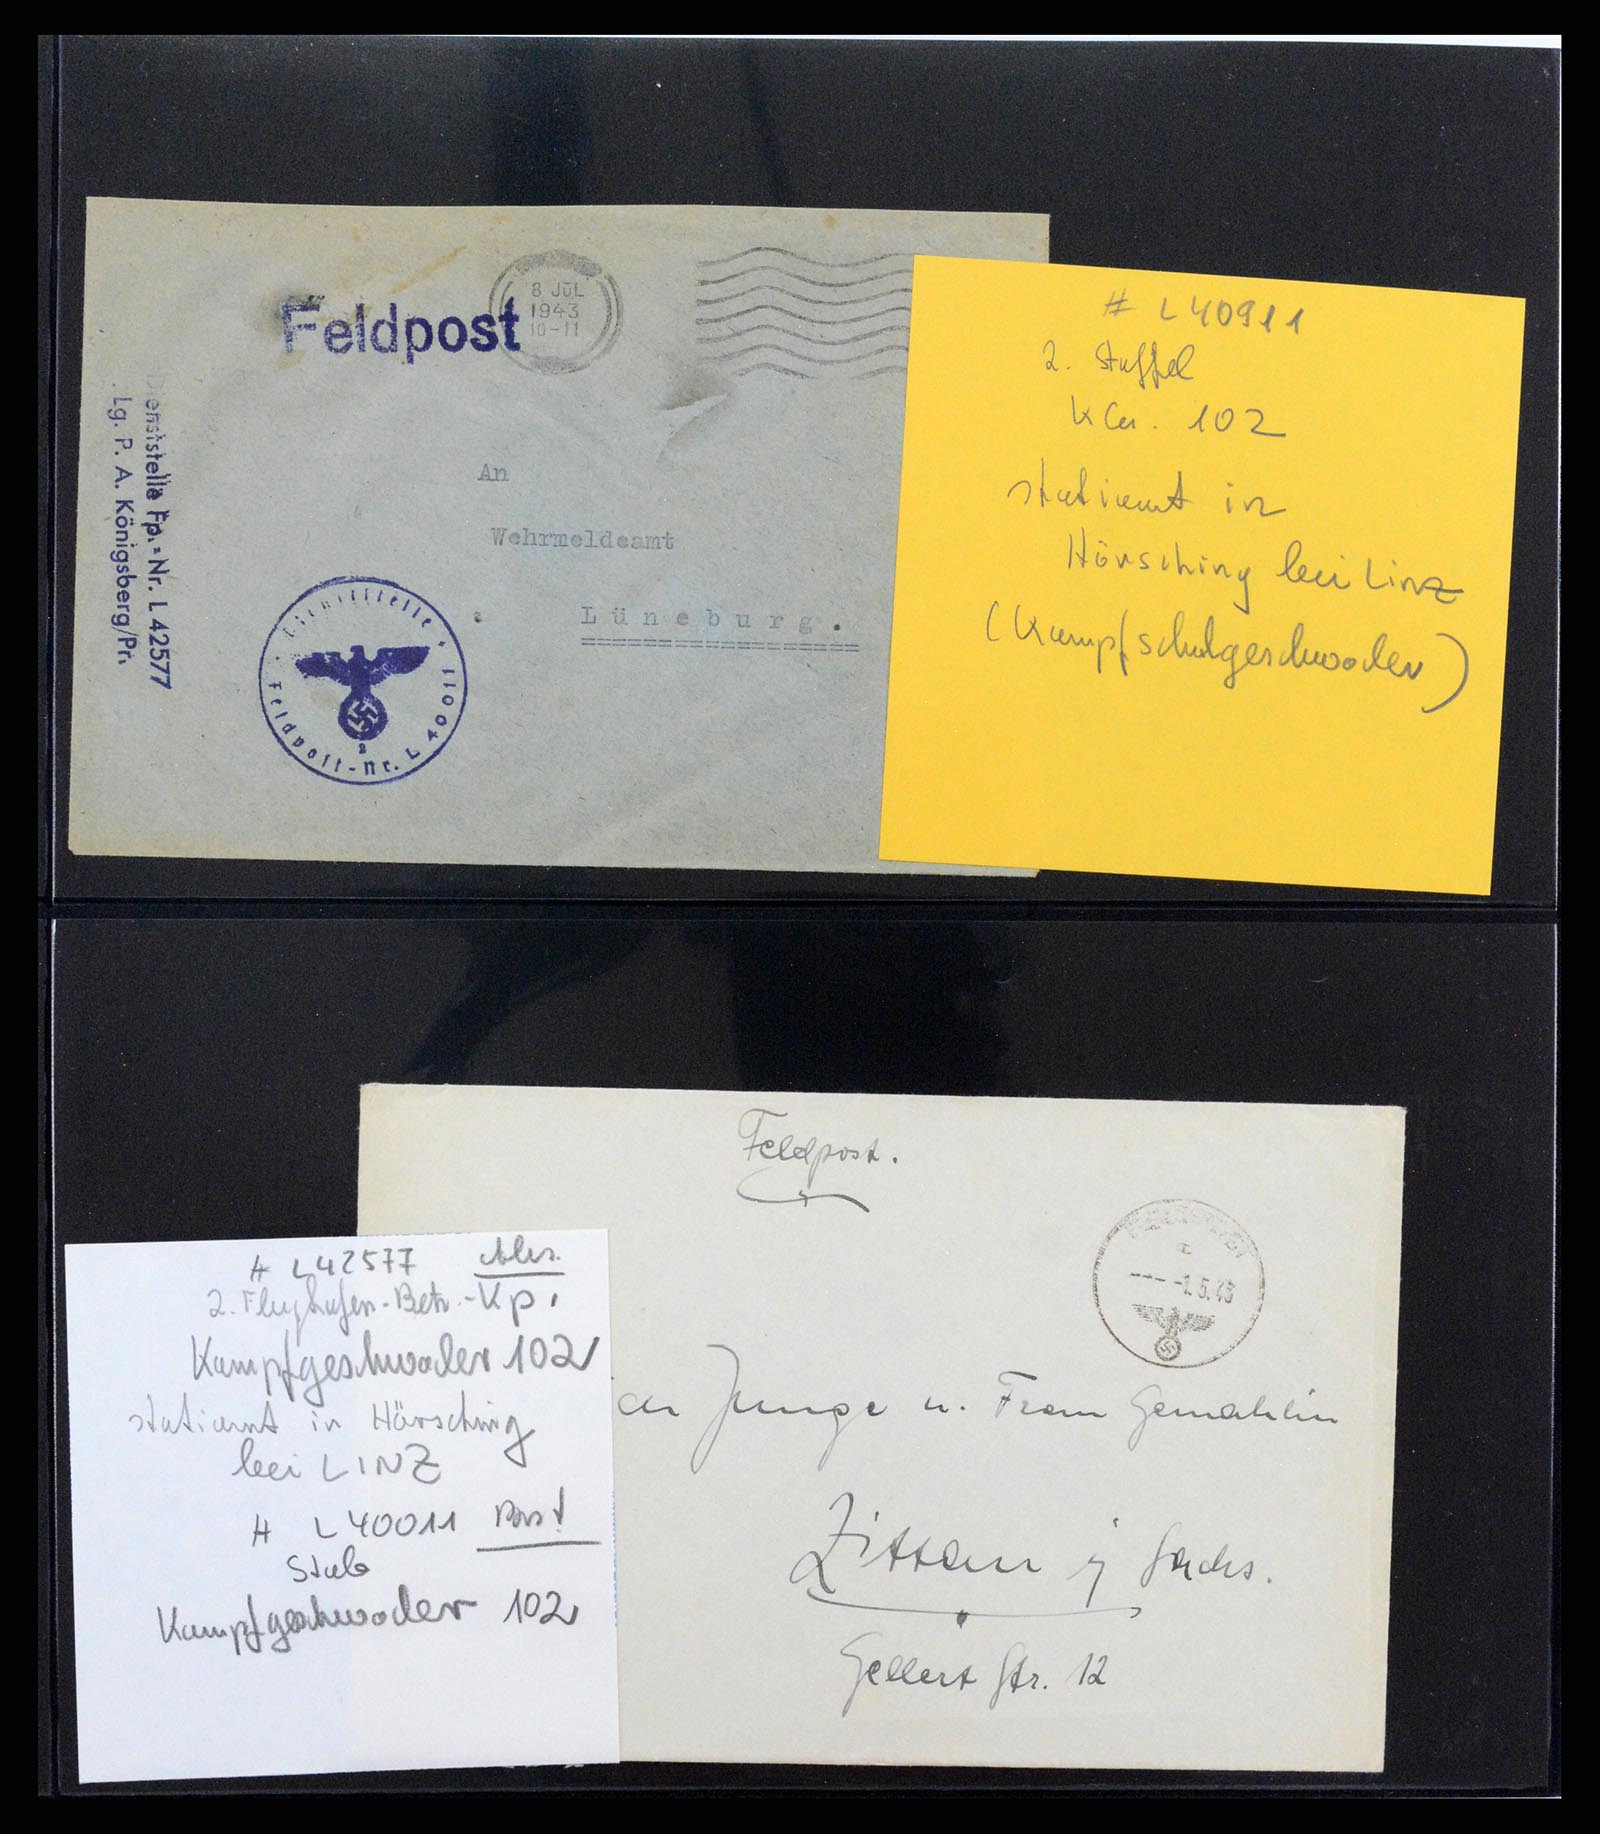 Feldpost
8 JUL
1943
10-11
Dienststelle Fp.-Nr. L 42577
Lg. P. A. Königsberg/Pr.
An
Wehrmeldeamt
Lüneburg.
Feldpost-Nr. L 40011
2
# L 40911
2. Staffel
KGes. 102
stationiert in
Hörsching bei Linz
(Kampfschulgeschwader)
Feldpost.
-1.5.43
Junge u. Frau Gemahlin
Zittau i/ Sachs.
Gellert Str. 12
# L42577 Abs.
2. Flughafen-Betr.-Kp.
Kampfgeschwader 102
stationiert in Hörsching
bei LINZ
# L 40011
Stab
Kampfgeschwader 102